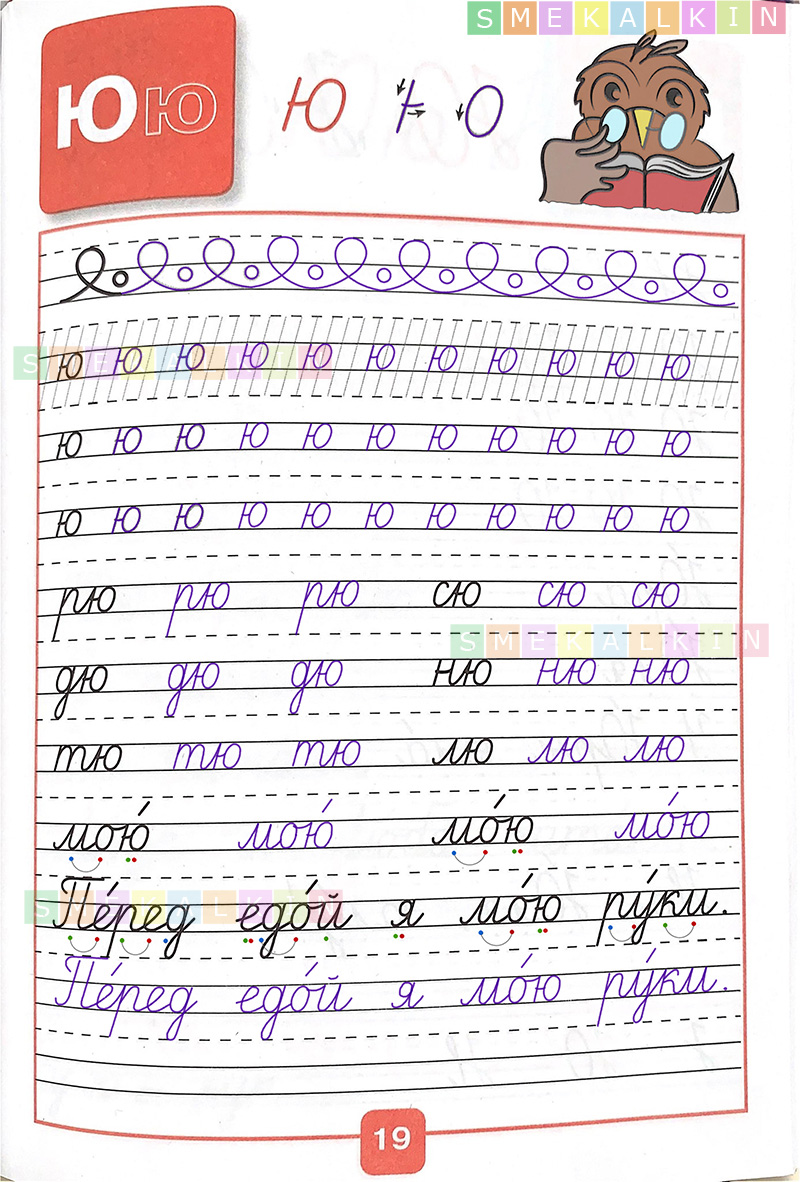 SMEKALKIN
Ю Ю Ю
SMEKALKIN
ю ю ю ю ю ю ю ю ю ю ю
ю ю ю ю ю ю ю ю ю ю ю
ю ю ю ю ю ю ю ю ю ю ю
рю рю рю сю сю сю
SMEKALKIN
дю дю дю ню ню ню
тю тю тю лю лю лю
мою́ мою́ мо́ю мо́ю
SMEKALKIN
Пе́ред едо́й я мо́ю ру́ки.
Пе́ред едо́й я мо́ю ру́ки.
19